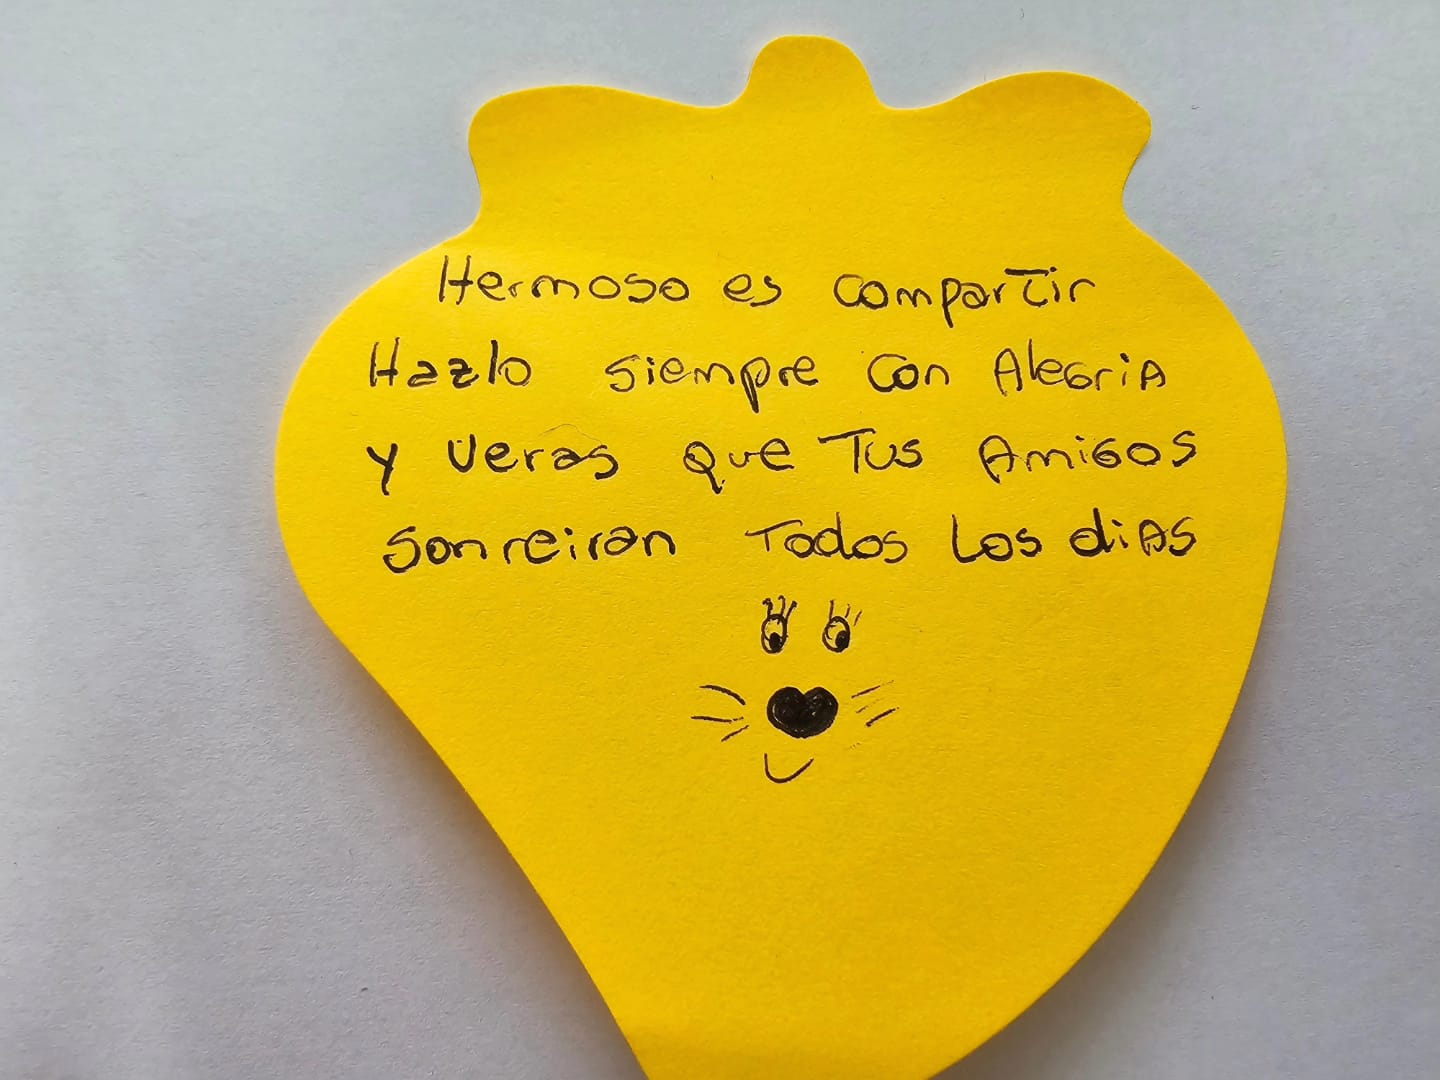 Hermoso es compartir
Hazlo siempre con Alegria
y veras que Tus Amigos
sonreiran Todos Los dias